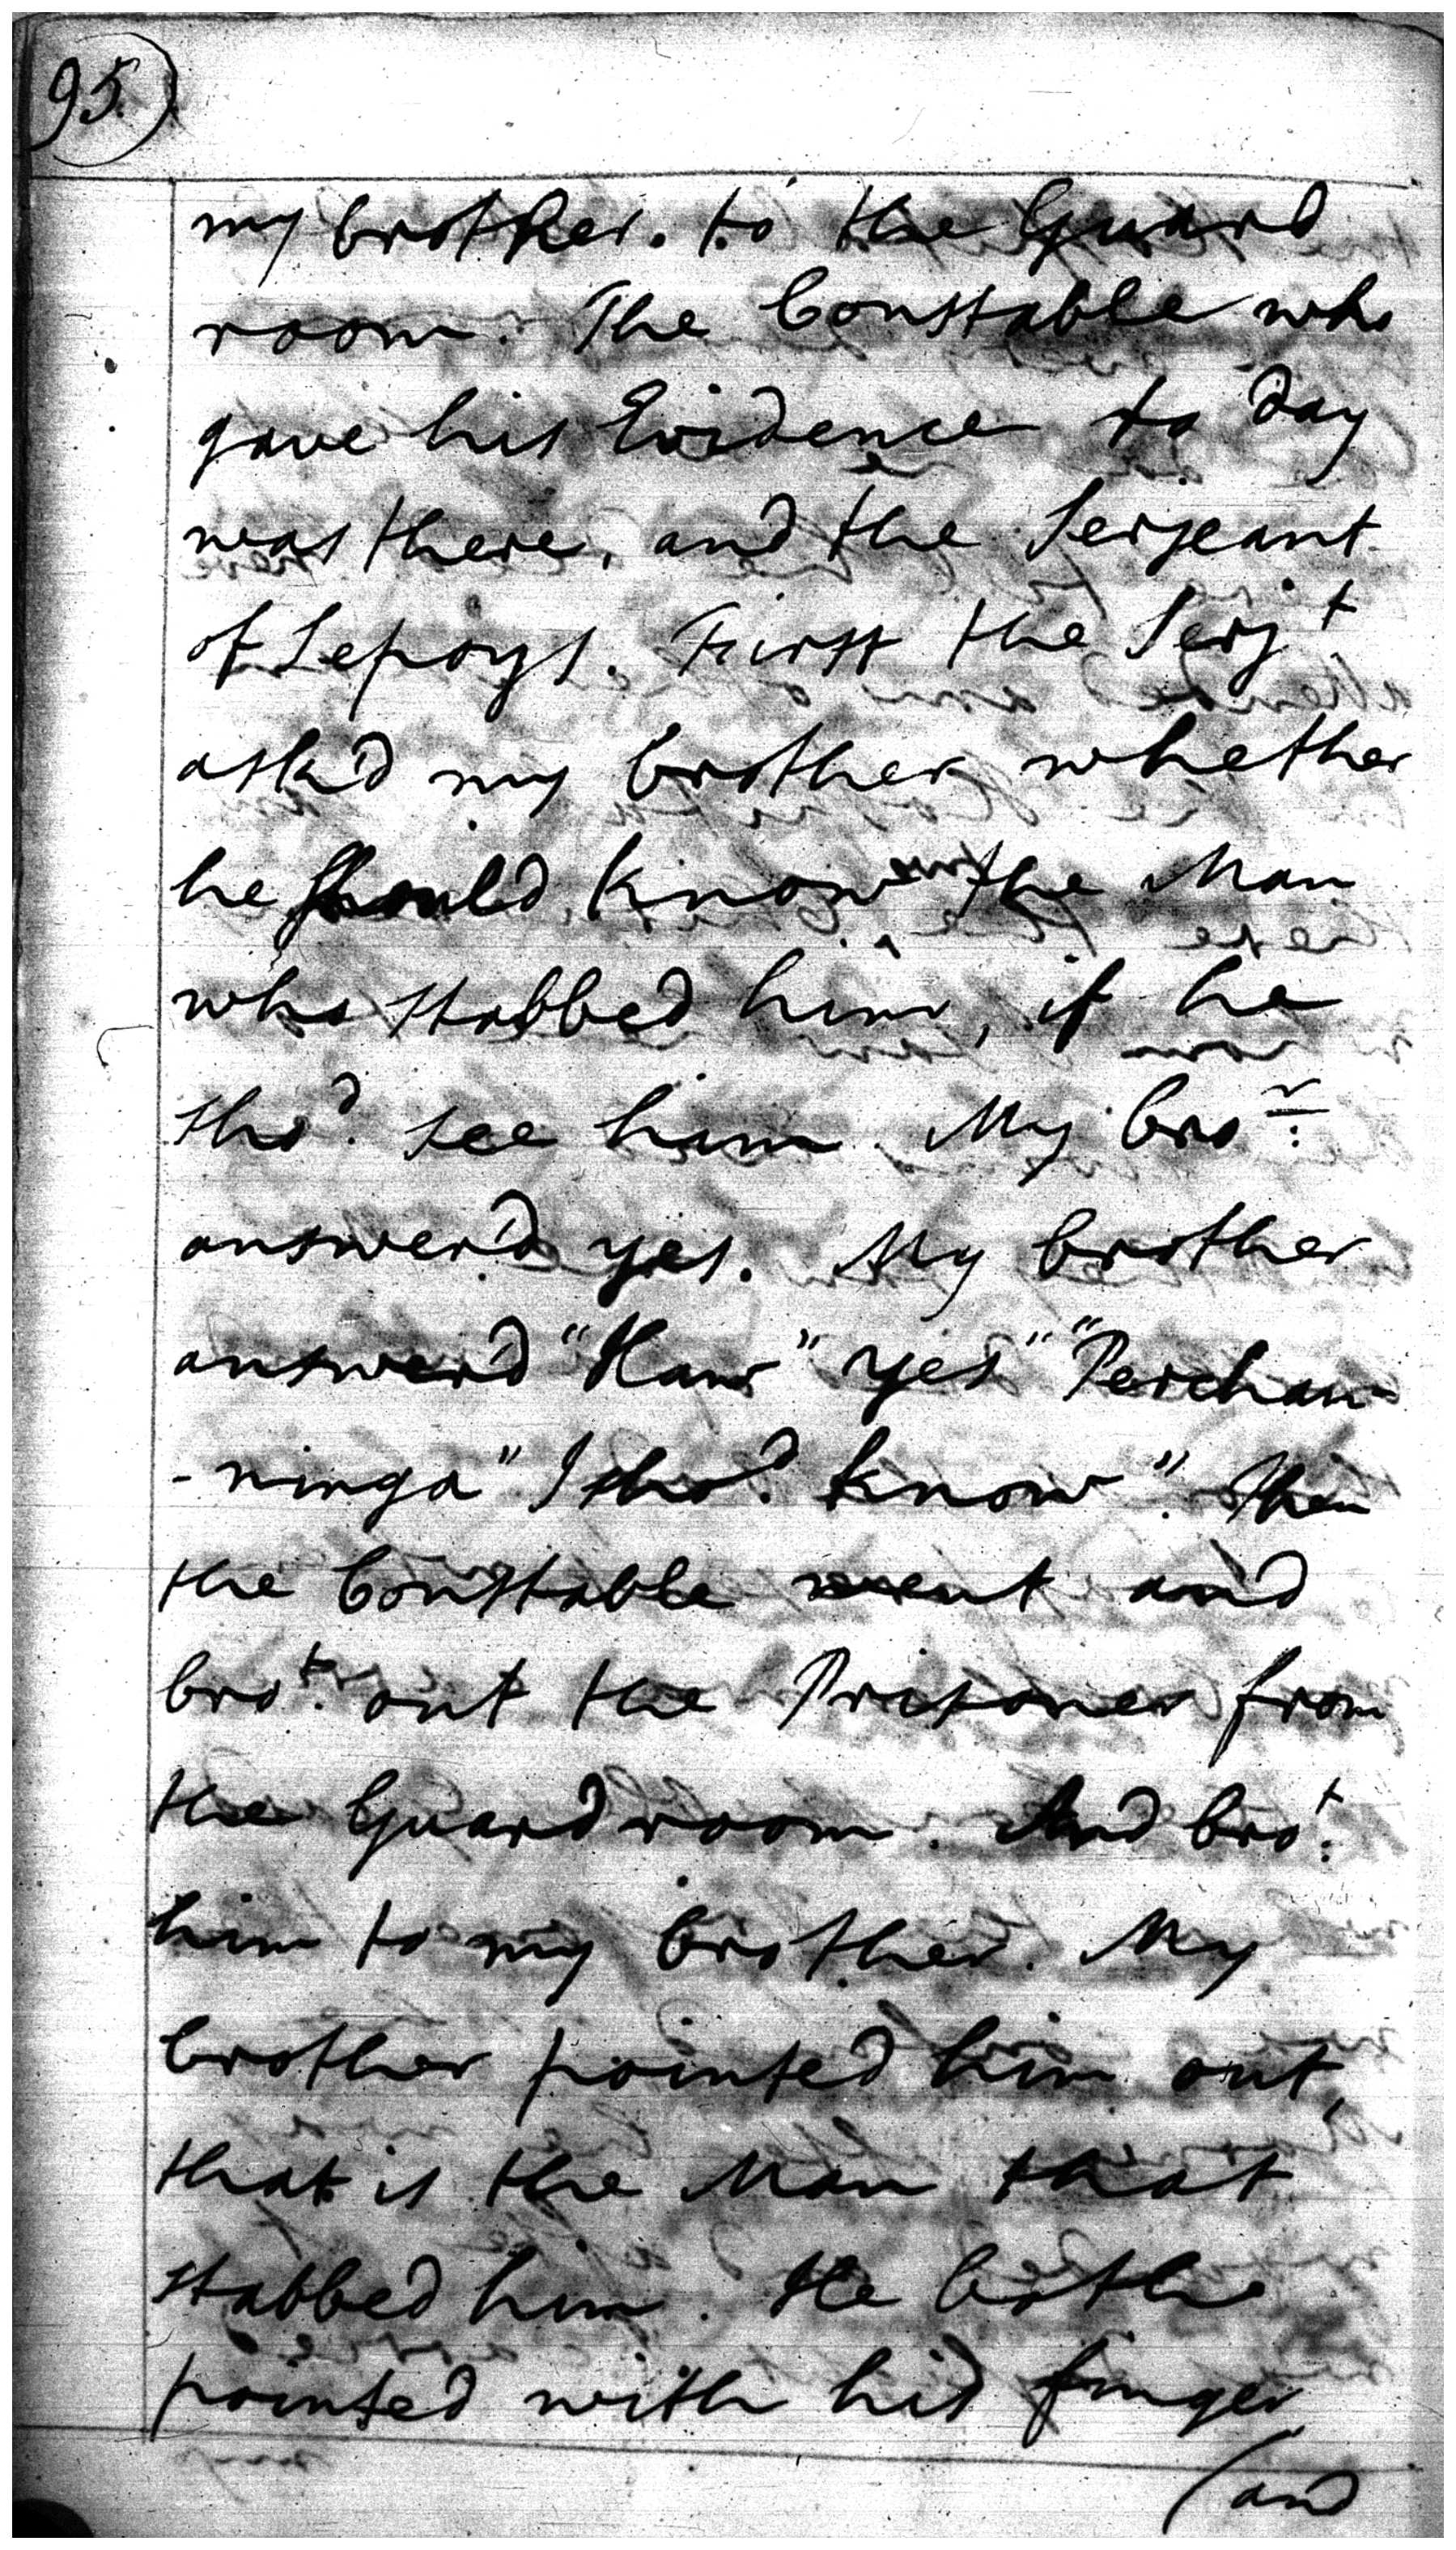 95.)
my brother. to the Guard
room. The Constable who
gave his Evidence to day
was there, and the Serjeant
of Sepoys. First the Serj.t
ask'd my brother whether
he should know the Man
who stabbed him, if he
sho.d see him. My bro.r
answer'd yes. My brother
answer'd "Haw" yes" "Perchan-
-ninga" I sho.d know". Then
the Constable went and
bro.t out the Prisoner from
the Guard room. And bro.t
him to my brother. My
brother pointed him out,
that is the Man that
stabbed him. He bothe
pointed with his finger
(and